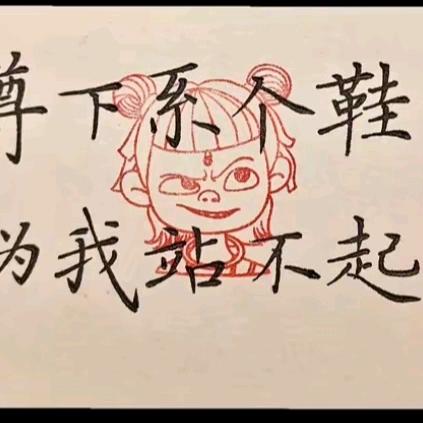 蹲下系个鞋
为我站不起